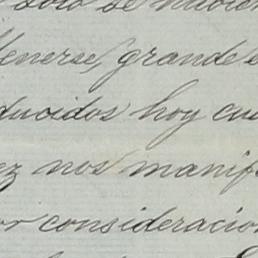 solo se
tenerse, grande
ducidos hoy cu
ez nos manif
or consideracio